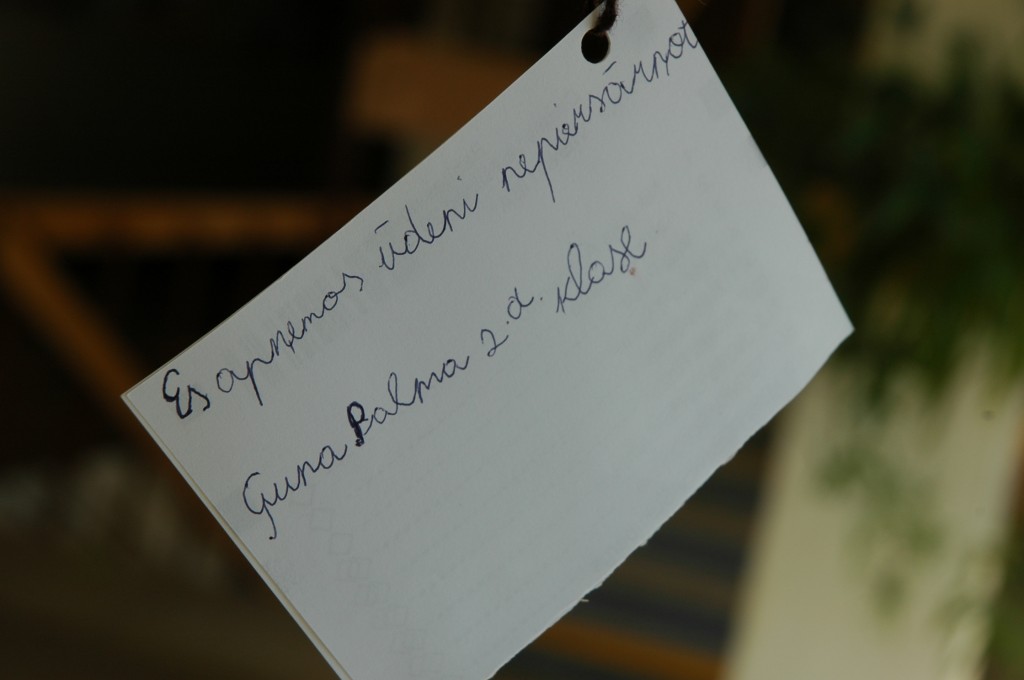 Es apņemos ūdeni nepiersārņot
Guna Palma 2.d. klase